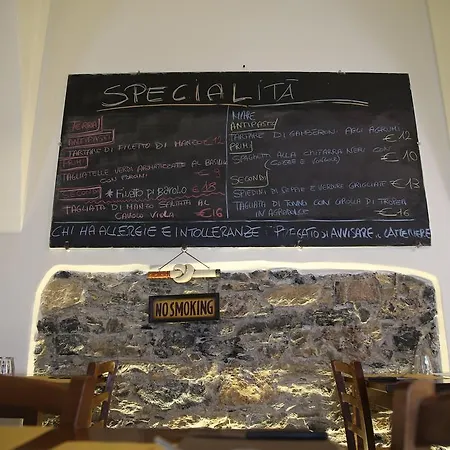 SPECIALITÀ
TERRA
ANTIPASTI
TARTARE DI FILETTO DI MANZO €12
PRIMI
TAGLIATELLE VERDI AROMATIZZATE AL
CON €9
SECONDI * FILETTO DI BAROLO € 18
TAGLIATA DI MANZO SALTATA AL
CAVOLO VIOLA €16
MARE
ANTIPASTI
TARTARE DI GAMBERONI AGLI AGRUMI € 12
PRIMI
SPAGHETTI ALLA CHITARRA NERI CON € 10
(COZZE E VONGOLE)
SECONDI
SPIEDINI DI E VERDURE GRIGLIATE €13
TAGLIATA DI TONNO CON CIPOLLA DI TROPEA
IN AGRODOLCE €16
CHI HA ALLERGIE E INTOLLERANZE È PREGATO DI AVVISARE IL CAMERIERE
NO SMOKING